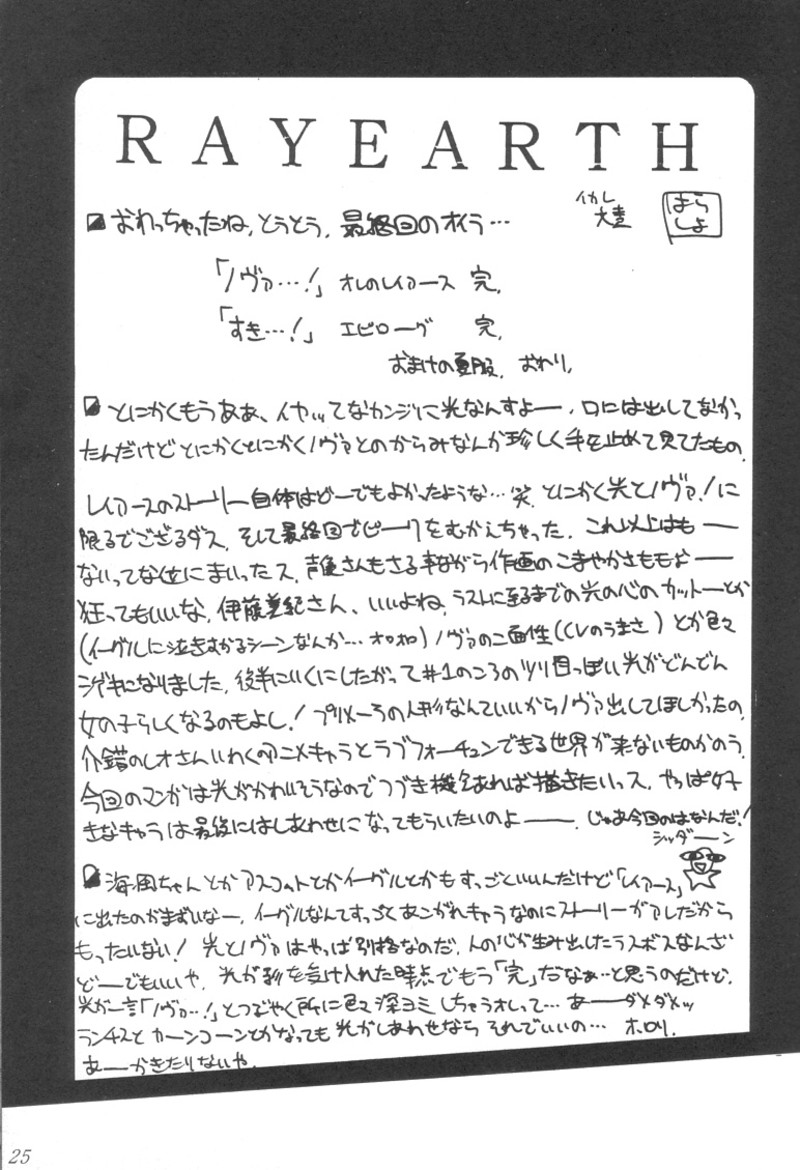 RAYEARTH
イカレ大王
はらしょ
おわっちゃったね,とうとう,最終回のオイラ…
「ノヴァ…!」オレのレイアース 完,
「すき…!」エピローグ 完,
おまけの夏服, おわり,
とにかくもうああ、イヤッってなカンジに光なんすよー,口には出してなかっ
たんだけどとにかくとにかくノヴァとのからみなんか珍しく手を止めて見てたもの,
レイアースのストーリー自体はどーでもよかったような…笑,とにかく光とノヴァ!に
限るでござるダス,そして最終回でピークをむかえちゃった,これ以上はもー
ないってな位にまいったス,声優さんもさる事ながら作画のこまやかさももぉー
狂ってもいいな,伊藤美紀さん、いいよね,ラストに至るまでの光の心のカットーとか
(イーグルに泣きすがるシーンなんか…オロオロ)ノヴァの二面性(CVのうまさ)とか色々
シゲキになりました,後半にいくにしたがって#1のころのツリ目っぽい光がどんどん
女の子らしくなるのもよし!プリメーラの人形なんていいからノヴァ出してほしかったの,
介錯のしオさんいわくのアニメキャラとラブフォーチュンできる世界が来ないものかのう,
今回のマンガは光がかわいそうなのでつづき機会あれば描きたいっス,やっぱ好
きなキャラは最後にはしあわせになってもらいたいのよー,じゃあ今回のはなんだ!
ジッダーン
海風ちゃんとかアスコットとかイーグルとかもすっごといいんだけど「レイアース」
に出たのがまずいなー,イーグルなんてすっごくあこがれキャラなのにストーリーがアレだから
もったいない! 光とノヴァはやっぱ別格なのだ,人の心が生み出したラスボスなんざ
どーでもいいや,光が影を受け入れた時点でもう「完」だなぁ…と思うのだけど,
光が一言「ノヴァ…!」とつぶやく所に色々深ヨミしちゃうオレって…あーダメダメッ
ランティスとカーンコーンとかなっても光がしあわせなら それでいいの… ホロリ,
あーかきたりないや,
25